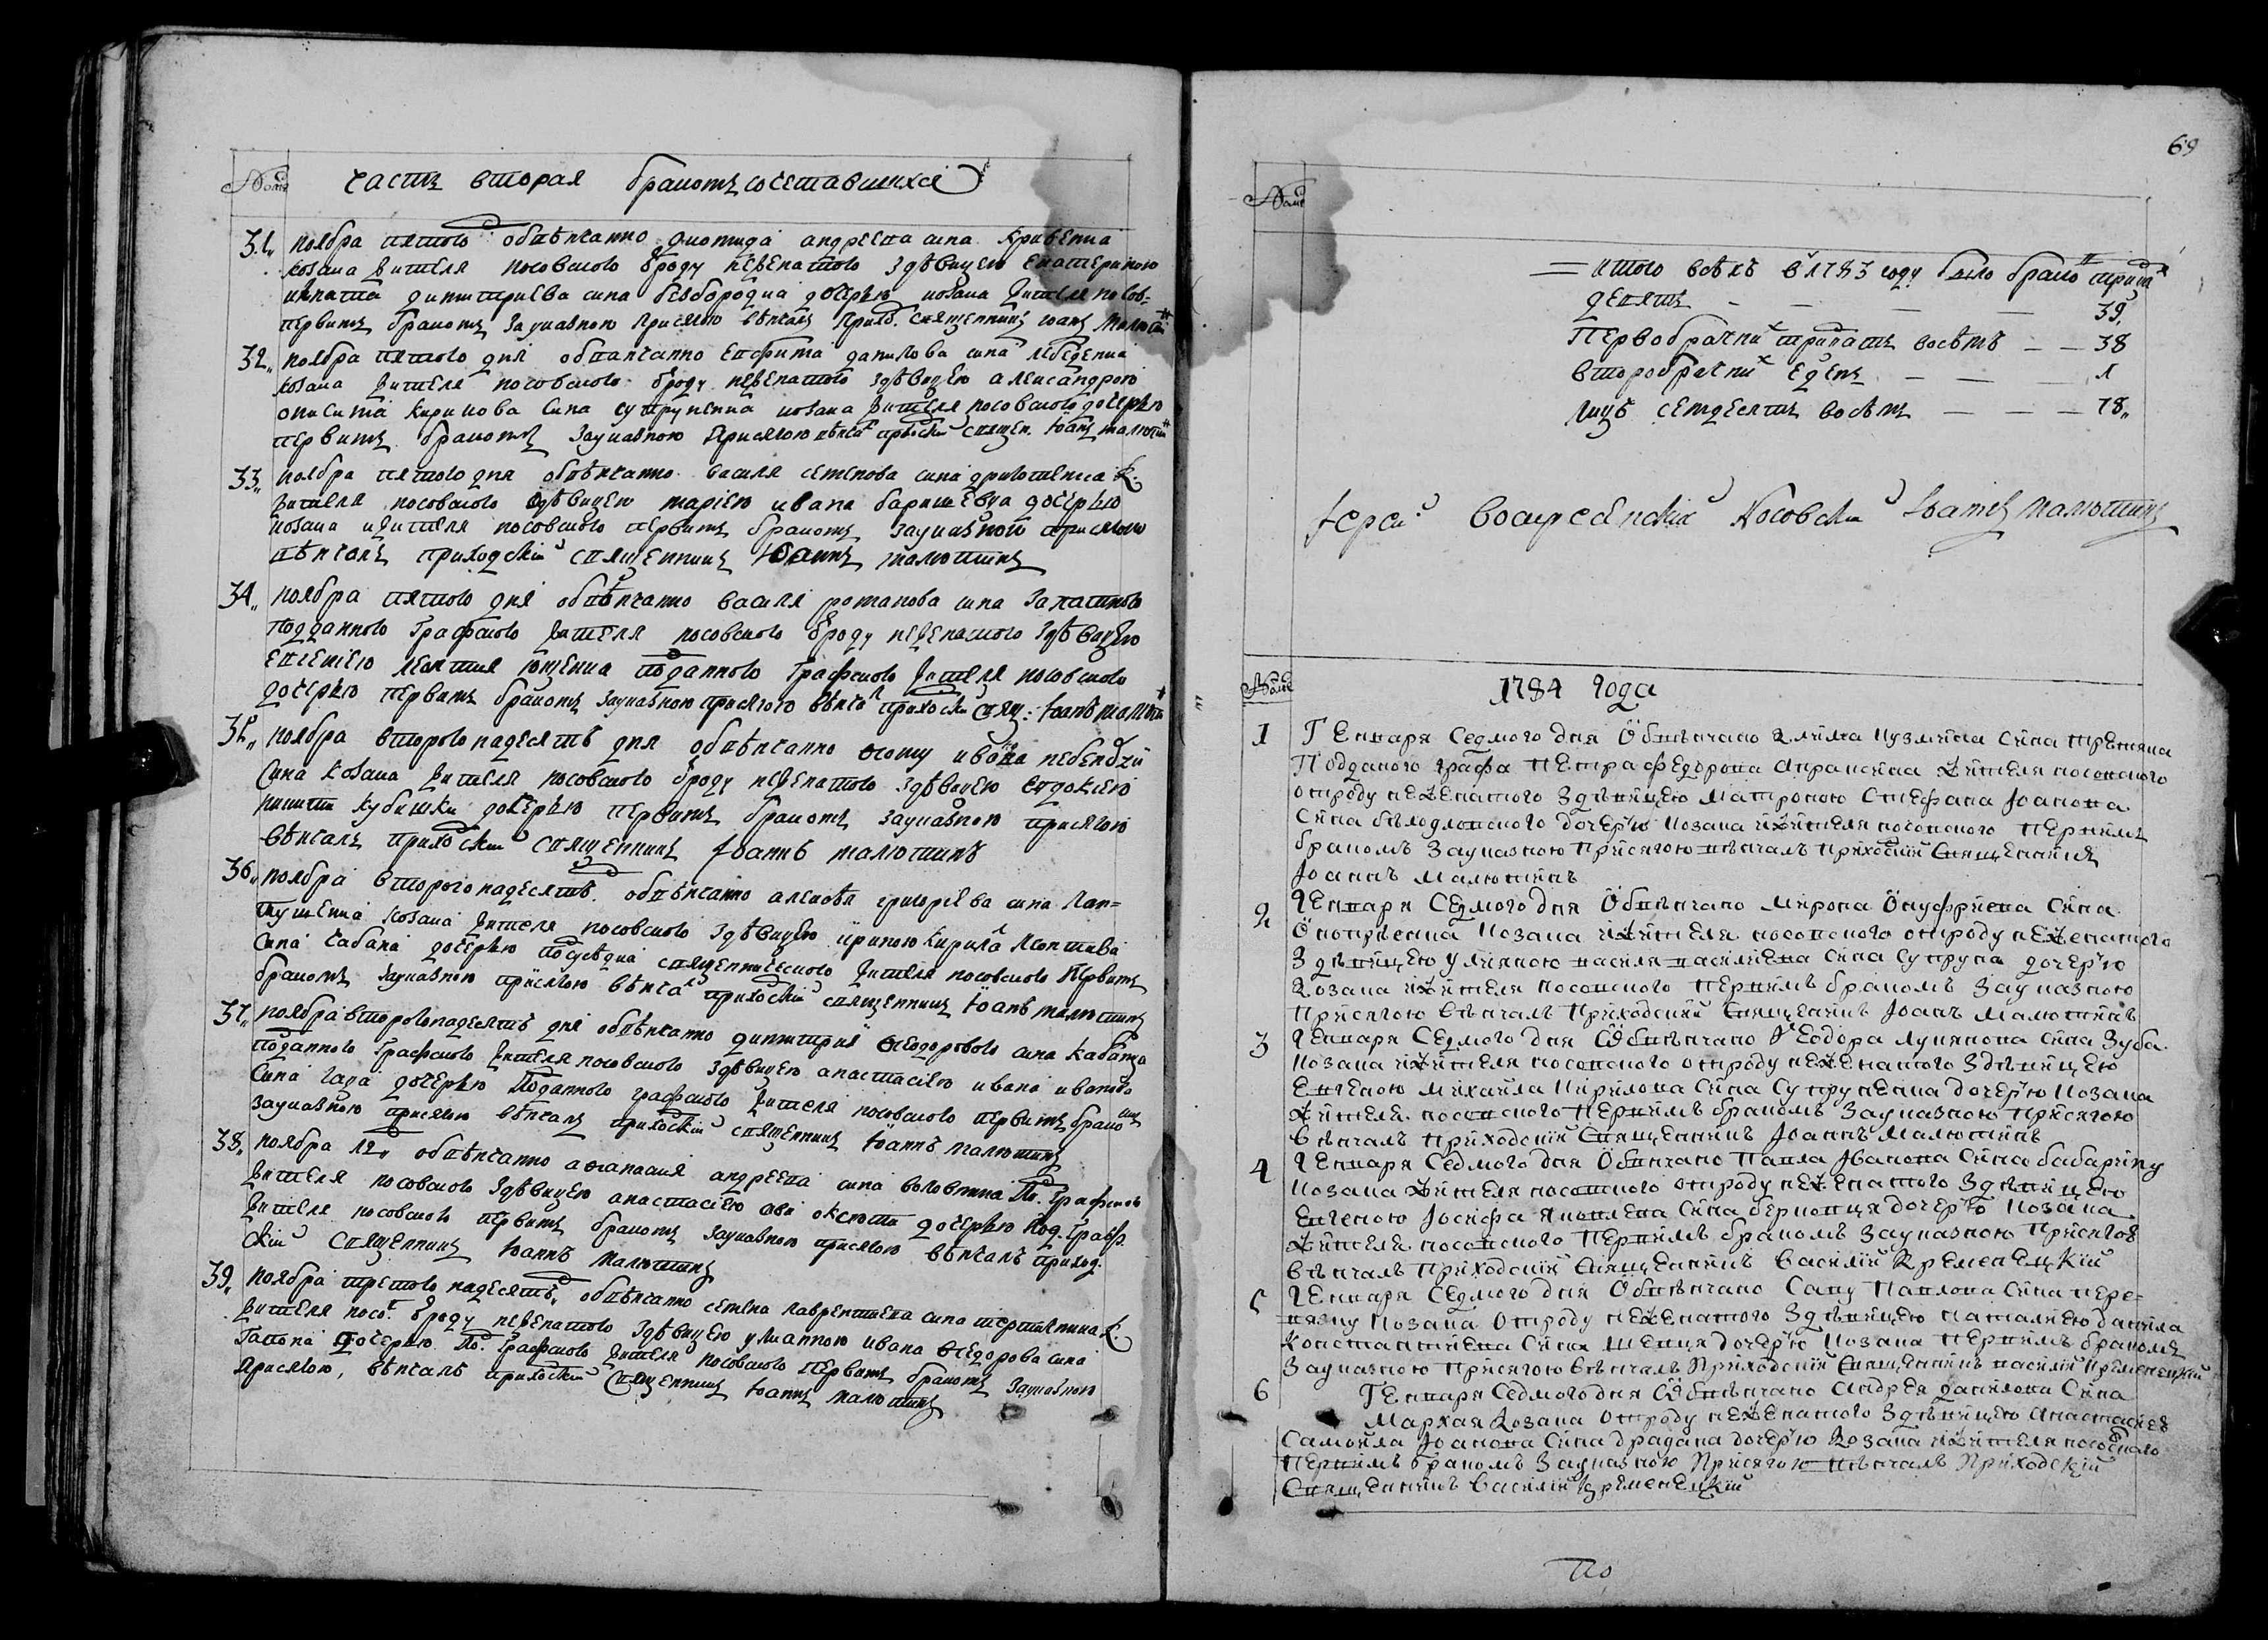 часть вторая бракомъ сочетавшихся
31. ноября пятого обвѣнчанно диомида андреева сина Кривенка
козака жителя носовского ѿроду неженатого здѣвицею екатериною
игната димитриева сина безбородка дочерью козака жителя носов:
первимъ бракомъ зауказною присягою вѣнчалъ прихо. священникъ иоанъ Малют
32. ноября пятого дня обванчанно евфима данилова сина лебеденка
козака жителя носовского ѿроду неженатого здѣвицею александрою
онисима кирикова сина супруненка козака жителя носовского дочерью
первимъ бракомъ зауказною присягою вѣнча приходскій священ. Іоанъ малют
33. ноября пятого дня обвѣнчанно василя семенова сина К.
жителя носовского здѣвицею мариею ивана баришевца дочерью
козака ижителя носовского первимъ бракомъ зауказною присягою
вѣнчалъ приходскій священникъ Іоаннъ малютинъ
34. ноября пятого дня обвѣнчанно василя романова сина
подданного Графского жителя носовского ѿроду неженатого здѣвицею
евгениею леонтия ющенка подданного Графского жителя носовского
дочерью первимъ бракомъ зауказною присягою вѣнча приходскій свящ: Іоанъ малют
35. ноября второгонадесять дня обвѣнчанно ѳому ивана
сина козака жителя носовского ѿроду неженатого здѣвицею евдокиею
никити кубишки дочерью первимъ бракомъ зауказною присягою
вѣнчалъ приходскій священникъ Іоаннъ малютинъ
36. ноября второгонадесять обвѣнчанно алексѣя григориева сина Лап=
тушенка козака жителя носовского здѣвицею ириною Кирила леонтиева
сина чабана дочерью подсусѣдка священнического жителя носовского первимъ
бракомъ зауказною присягою вѣнча приходскій священникъ Іоанъ малютинъ
37. ноября второгонадесять дня обвѣнчанно димитрия ѳеодорового сина Кабана
подданного Графского жителя носовского здѣвицею анастасиею ивана иванова
сина дочерью подданного графского жителя носовского первимъ брако
зауказною присягою вѣнчалъ приходскій священникъ Іоаннъ малютинъ
38. ноября 12 обвѣнчанно аѳанасия андреева сина воловника По. Графского
жителя носовского здѣвицею анастасиею дочерью под. Графс.
жителя носовского первимъ бракомъ зауказною присягою вѣнчалъ приход:
скій священникъ Іоаннъ Малютинъ
39. ноября третогонадесять обвѣнчанно семена лаврентиева сина К.
жителя носо. ѿроду неженатого здѣвицею улианною ивана ѳеодорова сина
Гапона дочерью По. Графского жителя носовского первимъ бракомъ зауказною
присягою, вѣнчалъ приходскій священникъ Іоаннъ Малютинъ
69
= итого всѣхъ в 1783 году било брако тритц
девять — — — — 39.
Первобрачних тритцать восѣмъ — — 38
второбрачних едень — — — 1
лицъ семдесятъ восѣмъ — — — 78.
Іерей Воскресенский Носовский Іоаннъ Малютинъ
1784 Года
1 Генваря Седмого дня Обвѣнчано клима кузмина Сина
Подданого графа Петра Федорова Апраксина жителя носовского
отроду неженатого Здѣвицею Матроною Стефана Іоанова
Сина бѣлодловского дочерю козака ижителя носовского первимъ
бракомъ Зауказною Присягою вѣнчалъ приходский Священникъ
Іоаннъ Малютинъ
2 Генваря Седмого дня Обвѣнчано Мирона Онуфриева Сина
козака ижителя носовского отроду неженатого
Здѣвицею Улияною василя василиева Сина Супруна дочерю
козака ижителя носовского первимъ бракомъ Зауказною
Присягою вѣнчалъ Приходский Священникъ Іоанъ Малютинъ
3 Генваря Седмого дня Обвѣнчано Ѳеодора лукянова Сина Зуба
козака ижителя носовского отроду неженатого Здѣвицею
Евгениею михаила Кирилова Сина Супруненка дочерю козака
жителя носовского первимъ бракомъ Зауказною Присягою
вѣнчалъ Приходский Священникъ Іоаннъ Малютинъ
4 Генваря Седмого дня Обвѣнчано Павла Іванова Сина бабарику
козака жителя носовского отроду неженатого Здѣвицею
Евгениею Іосифа яковлева Сина дочерю козака
жителя носовского первимъ бракомъ Зауказною Присягою
вѣнчалъ Приходский Священникъ Василий Кременецкий
5 Генваря Седмого дня Обвѣнчано Саву Павлова Сина пере-
вязку козака отроду неженатого Здѣвицею наталиею данила
константиева Сина шевця дочерю козака первимъ бракомъ
Зауказною Присягою вѣнчалъ Приходский Священникъ василий Кременецкий
6 Генваря Седмого дня Обвѣнчано Андрея данилова Сина
Мархая козака отроду неженатого Здѣвицею Анастасиею
Самоила Іоанова Сина драгана дочерю козака ижителя носовского
первимъ бракомъ Зауказною Присягою вѣнчалъ Приходский
Священникъ Василий Кременецкий
По